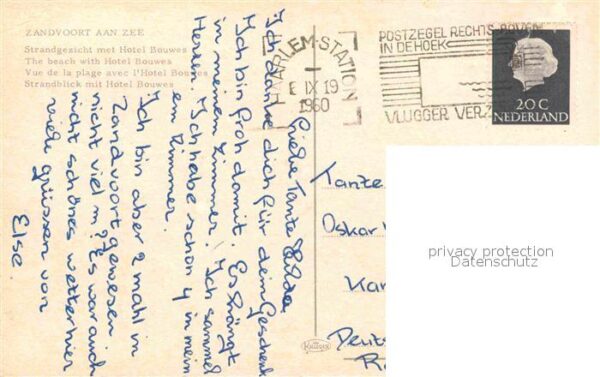 ZANDVOORT AAN ZEE
Strandgezicht met Hotel Bouwes
The beach with Hotel Bouwes
Vue de la plage avec l'Hotel Bouwes
Strandblick mit Hotel Bouwes
HAARLEM-STATION
IX 19
1960
POSTZEGEL RECHTS BOVEN
IN DE HOEK
VLUGGER VER
20 C
NEDERLAND
Liebe Tante Hilde
Ich danke dich für dein Geschenk
Ich bin froh damit. Es hängt
in meinem Zimmer. Ich sammel
Herzen. Ich habe schon 4 in mein
em Zimmer.
Ich bin aber 2 mahl in
Zandvoort gewesen
nicht viel m? Es war auch
nicht schönes wetter hier
viele grüssen von
Else.
Tante
Oskar
Kar
Deuts
R
privacy protection
Datenschutz